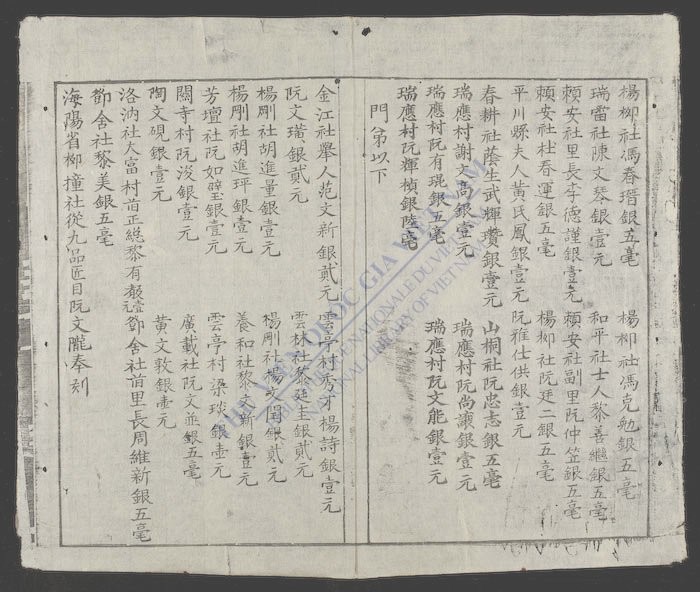 楊柳社馮春瑨銀五毫　楊柳社馮克勉銀五毫
瑞雷社陳文琴銀壹元　和平社士人黎善繼銀五毫
賴安社里長李德謹銀壹元　賴安社副里阮仲笠銀五毫
賴安社杜春運銀五毫　楊柳社阮廷二銀五毫
平川縣夫人黃氏鳳銀壹元　阮雅仕供銀壹元
春耕社蔭生武輝瓚銀壹元　山桐社阮忠志銀五毫
瑞應村謝文高銀壹元　瑞應村阮尚讓銀壹元
瑞應村阮有琨銀五毫　瑞應村阮文能銀壹元
瑞應村阮輝楨銀陸毫
門弟以下
金江社舉人范文新銀貳元　雲亭村秀才楊詩銀壹元
阮文璜銀貳元　雲林社黎廷主銀貳元
楊剛社胡進量銀壹元　楊剛社楊文閏銀貳元
楊剛社胡進坪銀壹元　養和社黎文新銀壹元
芳壇社阮如璧銀壹元　雲亭村梁琰銀壹元
閣寺村阮浚銀壹元　廣載社阮文並銀五毫
陶文硯銀壹元　黃文敦銀壹元
洛汭社大富村前正總黎有澈壹元　鄧舍社前里長周維新銀五毫
鄧舍社黎美銀五毫
海陽省柳撞社從九品匠目阮文隴奉刻
THƯ VIỆN QUỐC GIA VIỆT NAM
BIBLIOTHÈQUE NATIONALE DU VIETNAM
NATIONAL LIBRARY OF VIETNAM